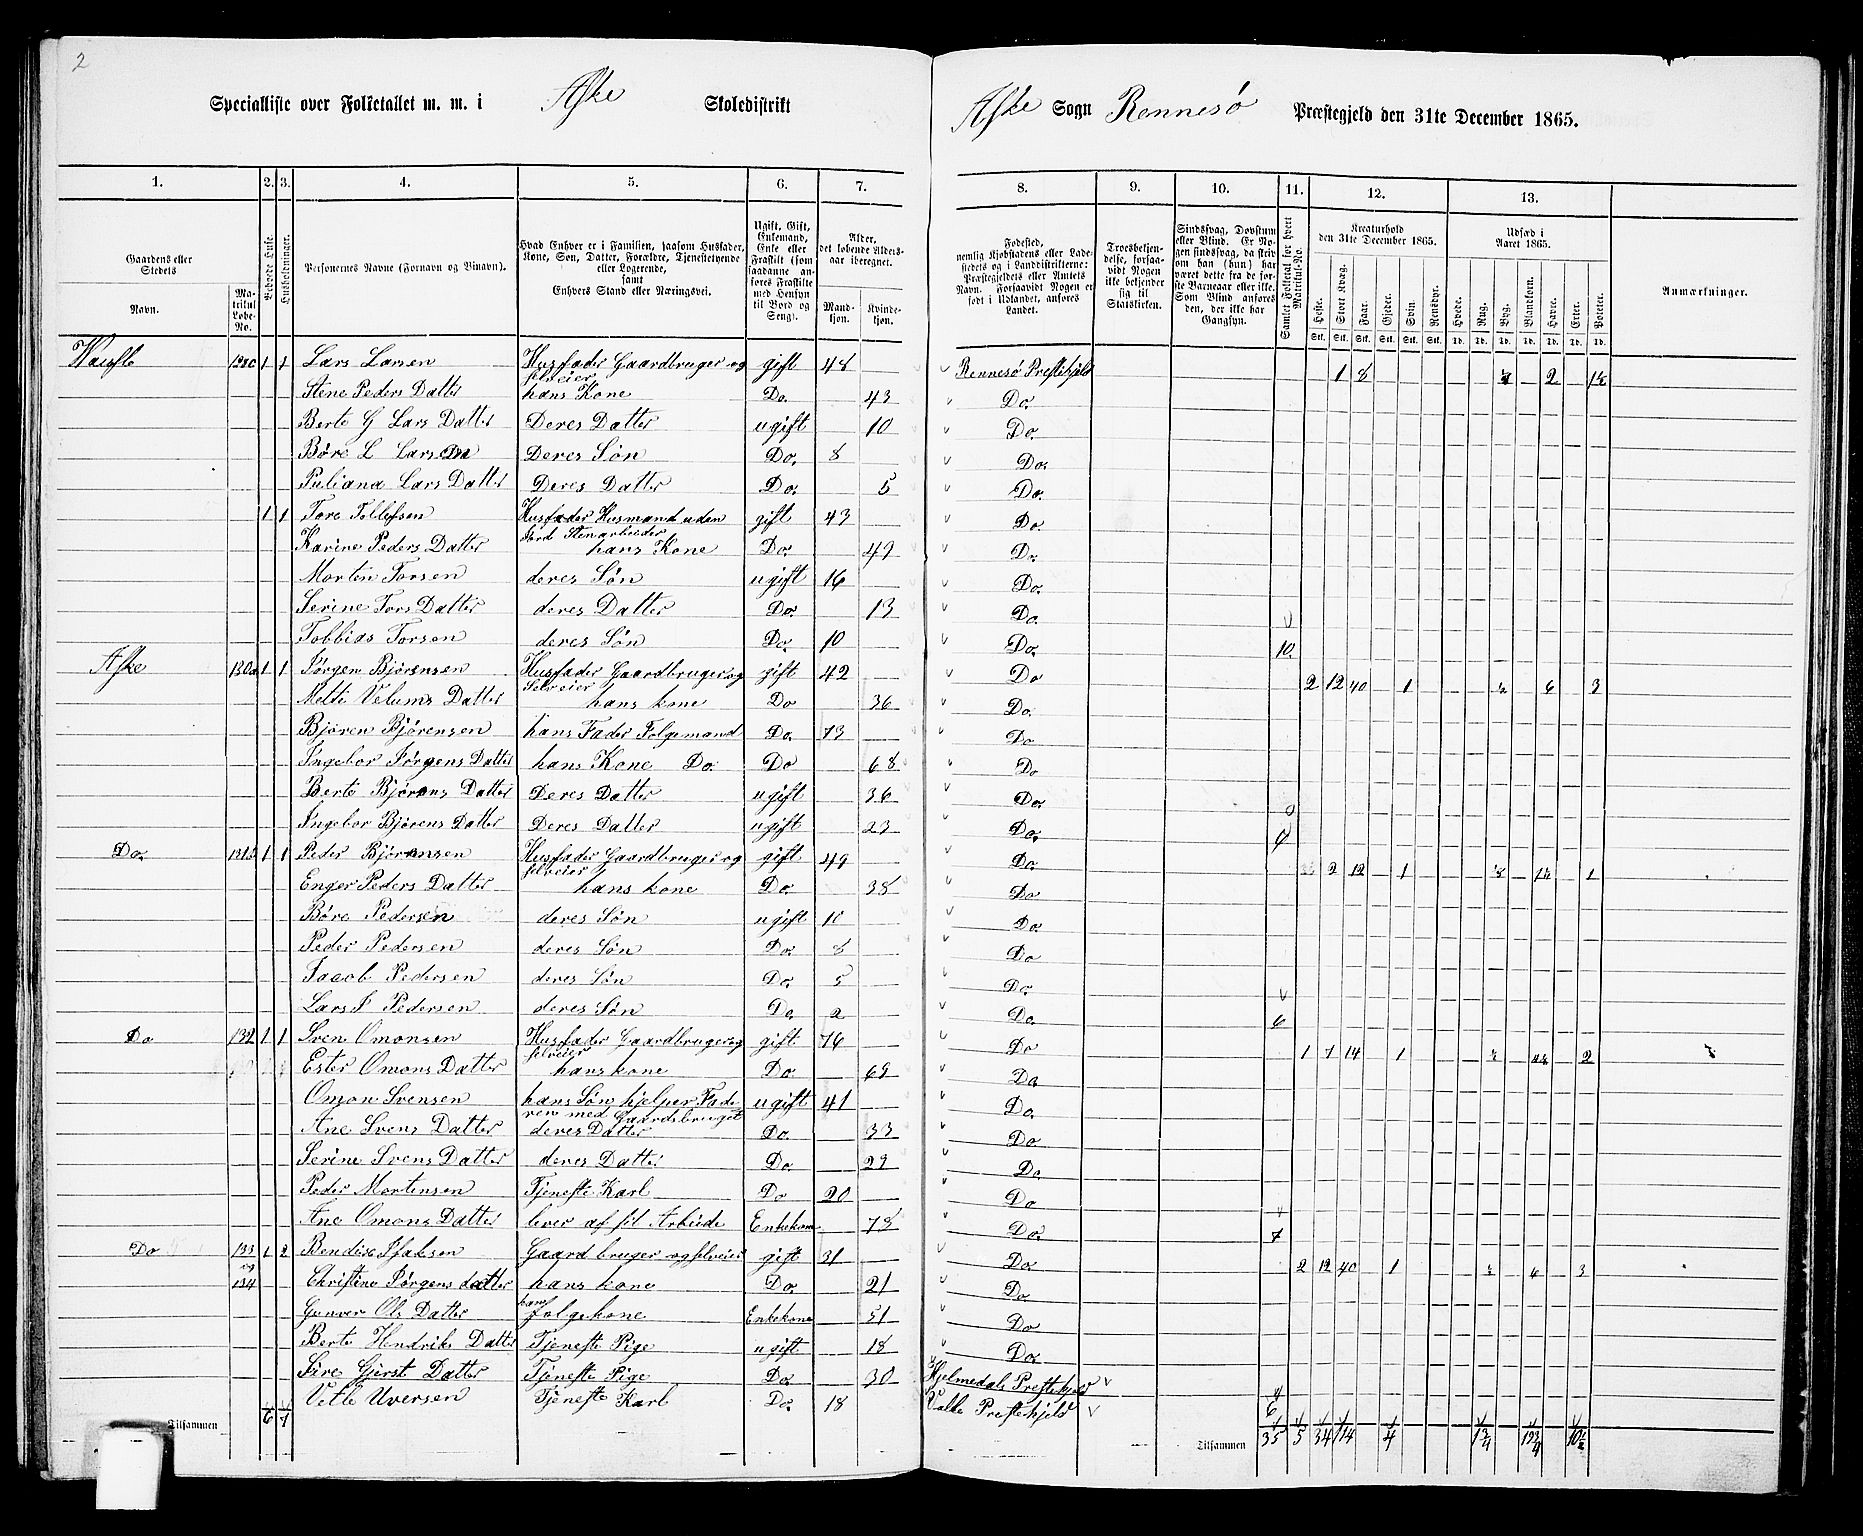 2
Specialliste over Folketallet m. m. i Aske Skoledistrikt
Aske Sogn Rennesø Præstegjeld den 31te December 1865.
1. 2. 3. 4. 5. 6. 7. 8. 9. 10. 11. 12. 13.
Gaardens eller Stedets
Navn.
Matrikul Løbe-No.
Beboede Huse.
Husholdninger.
Personernes Navne (Fornavn og Tilnavn).
Hvad Enhver er i Familien, saasom Husfader, Kone, Søn, Datter, Forældre, Tjenestetyende eller Logerende, samt Enhvers Stand eller Næringsvei.
Ugift, Gift, Enkemand, Enke eller Fraskilt (som saadanne anføres Fraskilte med Hensyn til Bord og Seng).
Alder, det løbende Aldersaar iberegnet.
Mandkjøn. Kvindekjøn.
Fødested, nemlig Kjøbstadens eller Ladestedets og i Landdistrikterne: Præstegjeldets eller Amtets Navn. Forsaavidt Nogen er født i Udlandet, anføres Landet.
Troesbekjendelse, forsaavidt Nogen ikke bekjender sig til Statskirken.
Sindssvag, Døvstum eller Blind. Er Nogen sindssvag, da skriv om han (hun) har været dette fra de første Barneaar eller ikke. Som Blind anføres den, der ikke har Gangsyn.
Samlet Folketal for hvert Matrikul-No.
Kreaturhold den 31te December 1865.
Heste. Stort Kvæg. Faar. Gjeder. Svin. Rensdyr.
Stk. Stk. Stk. Stk. Stk. Stk.
Udsæd i Aaret 1865.
Hvede. Rug. Byg. Blandkorn. Havre. Erter. Poteter.
Td. Td. Td. Td. Td. Td. Td.
Anmærkninger.
1 1 Lars Larsen Husfader Gaardbruger og selveier gift 48 Rennesø Prestehjeld 1 8 2
Stene Peders Datter hans Kone Do. 43 Do.
Berte G Lars Datter Deres Datter ugift 10 Do.
Børe L Larsen Deres Søn Do. 8 Do.
Juliana Lars Datter Deres Datter Do. 5 Do.
1 1 Tore Tollefsen Husfader Husmand uden Jord Stenarbeider gift 43 Do.
Karine Peders Datter hans Kone Do. 49 Do.
Morten Torsen deres Søn ugift 16 Do.
Serine Tors Datter deres Datter Do 13 Do.
Tobbias Torsen deres Søn Do. 10 Do. 10.
Aske 130a 1 1 Jørgen Bjørensen Husfader Gaardbruger og Selveier gift 42 Do 2 12 40 1 6 3
Melde Velums Datter hans kone Do 36 Do.
Bjøren Bjørensen hans Fader Folgemand Do. 73 Do
Ingebor Jørgens Datter hans Kone Do. Do 68 Do
Berte Bjørens Datter Deres Datter ugift 36 Do.
Ingebor Bjørens Datter Deres Datter ugift 23 Do.
Do. 1 1 Peder Bjørensen Husfader Gaardbruger og selveier gift 49 Do. 2 12 1 1
Enger Peders Datter hans kone Do. 38 Do
Børe Pedersen deres Søn ugift 10 Do.
Peder Pedersen deres Søn Do. 8 Do
Jacob Pedersen deres Søn Do. 5 Do.
Lars J Pedersen deres Søn Do 2 Do. 6
Do 132 1 1 Sven Omonsen Husfader Gaardbruger og selveier gift 76 Do 1 7 14 1 2
Ester Omons Datter hans kone Do. 69 Do
Omon Svensen hans Søn hjelper Faderen med Gaardsbruget ugift 41 Do.
Ane Svens Datter deres Datter Do. 33 Do
Serine Svens Datter deres Datter Do. 29 Do.
Peder Mortensen Tjeneste Karl Do 20 Do
Ane Omons Datter lever af sit Arbeide Enkekone 78 Do. 7
Do 133 og 134 1 2 Bendix Isaksen Gaardbruger og selveier gift 31 Do 2 12 40 1 6 3
Christine Jørgens datter hans kone Do. 21 Do.
Gunver Ols Datter hans folgekone Enkekone 51 Do
Berte Hendriks Datter Tjeneste Pige ugift 18 Do.
Sire Gjerst Datter Tjeneste Pige Do. 30 Hjelmedals Prestehjeld
Velle Uversen Tjeneste Karl Do. 18 Valke Prestehjeld 6
Tilsammen 6 7
Tilsammen 35 5 34 114 4 1 3/4 19 3/4 10 1/2